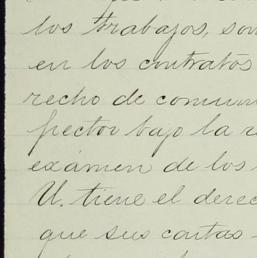 los trabajos, son
en los contratos
recho de comun
pector bajo la r
exámen de los
U. tiene el derec
que sus cartas